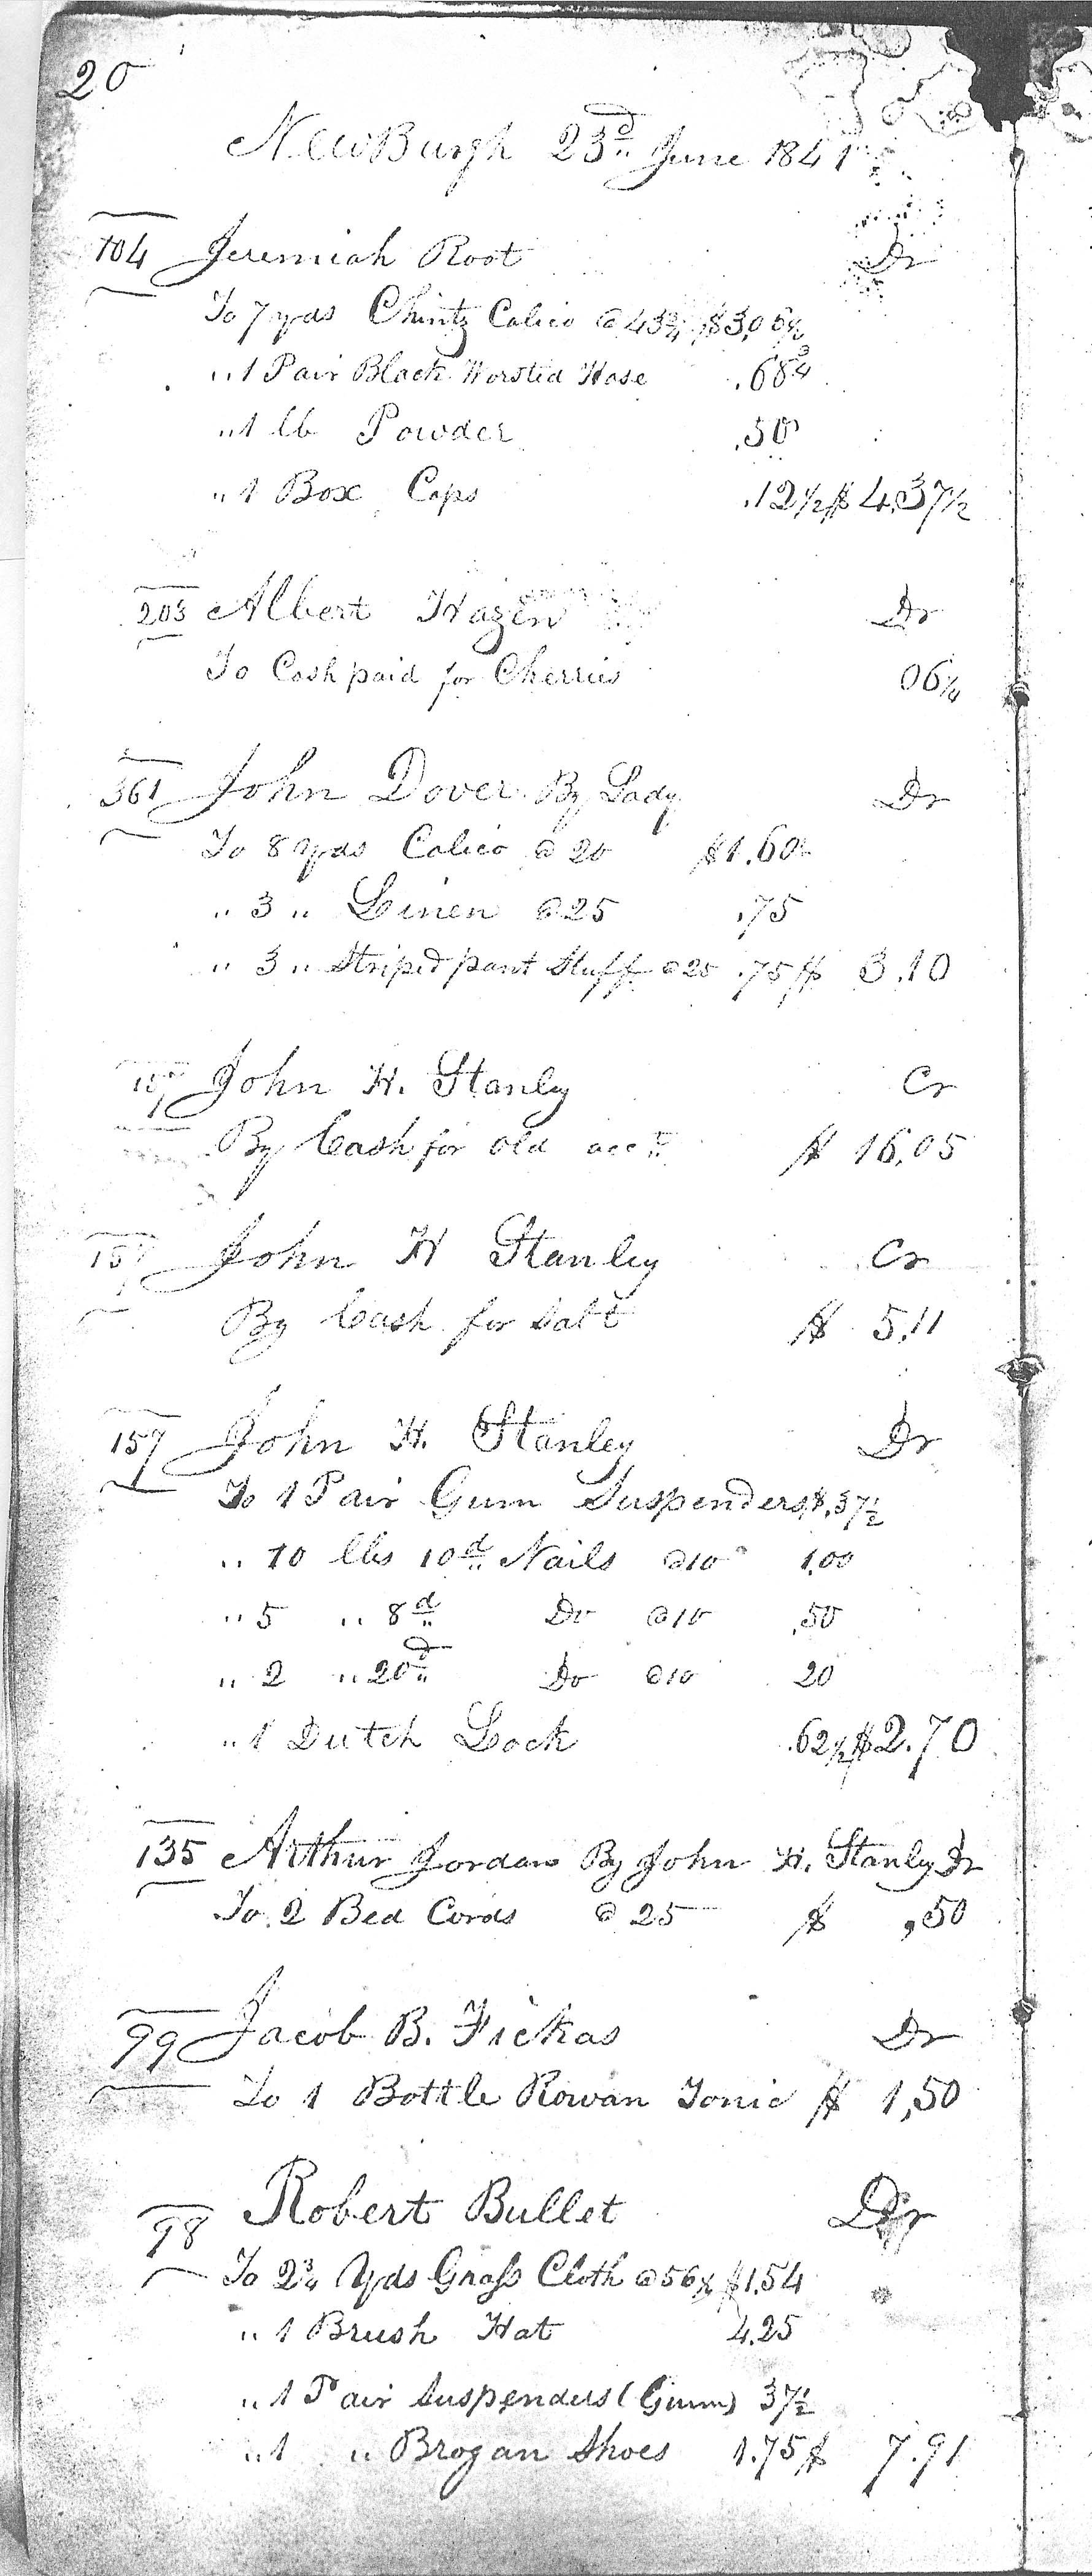 20
NewBurgh 23d June 1841
104 Jeremiah Root Dr
To 7 yds Chintz Calico @ 43¾ $3,06¼
" 1 Pair Black Worsted Hose .68¾
" 1 lb Powder .50
" 1 Box Caps .12½ $ 4.37½
203 Albert Hazen Dr
To Cash paid for Cherries 06¼
361 John Dover By Lady Dr
To 8 Yds Calico @ 20 $1.60
" 3 " Linen @ 25 .75
" 3 " Striped pant Stuff @ 25 .75 $ 3.10
John H. Stanly Cr
By Cash for old acct $ 16,05
157 John H Stanley Cr
By Cash for Salt $ 5,11
157 John H. Stanley Dr
To 1 Pair Gum Suspenders $.37½
" 10 lbs 10d Nails @10 1,00
" 5 " 8d Do @10 ,50
" 2 " 20d Do @10 20
" 1 Dutch Lock .62½ $2.70
135 Arthur Jordan By John H. Stanly Dr
To 2 Bed Cords @ 25 $ ,50
99 Jacob B. Fickas Dr
To 1 Bottle Rowan Tonic $ 1,50
98 Robert Bullet Dr
To 2¾ Yds Grass Cloth @ 56¼ $1.54
" 1 Brush Hat 4.25
" 1 Pair Suspenders (Gum) 37½
" 1 " Brogan Shoes 1.75 $ 7.91